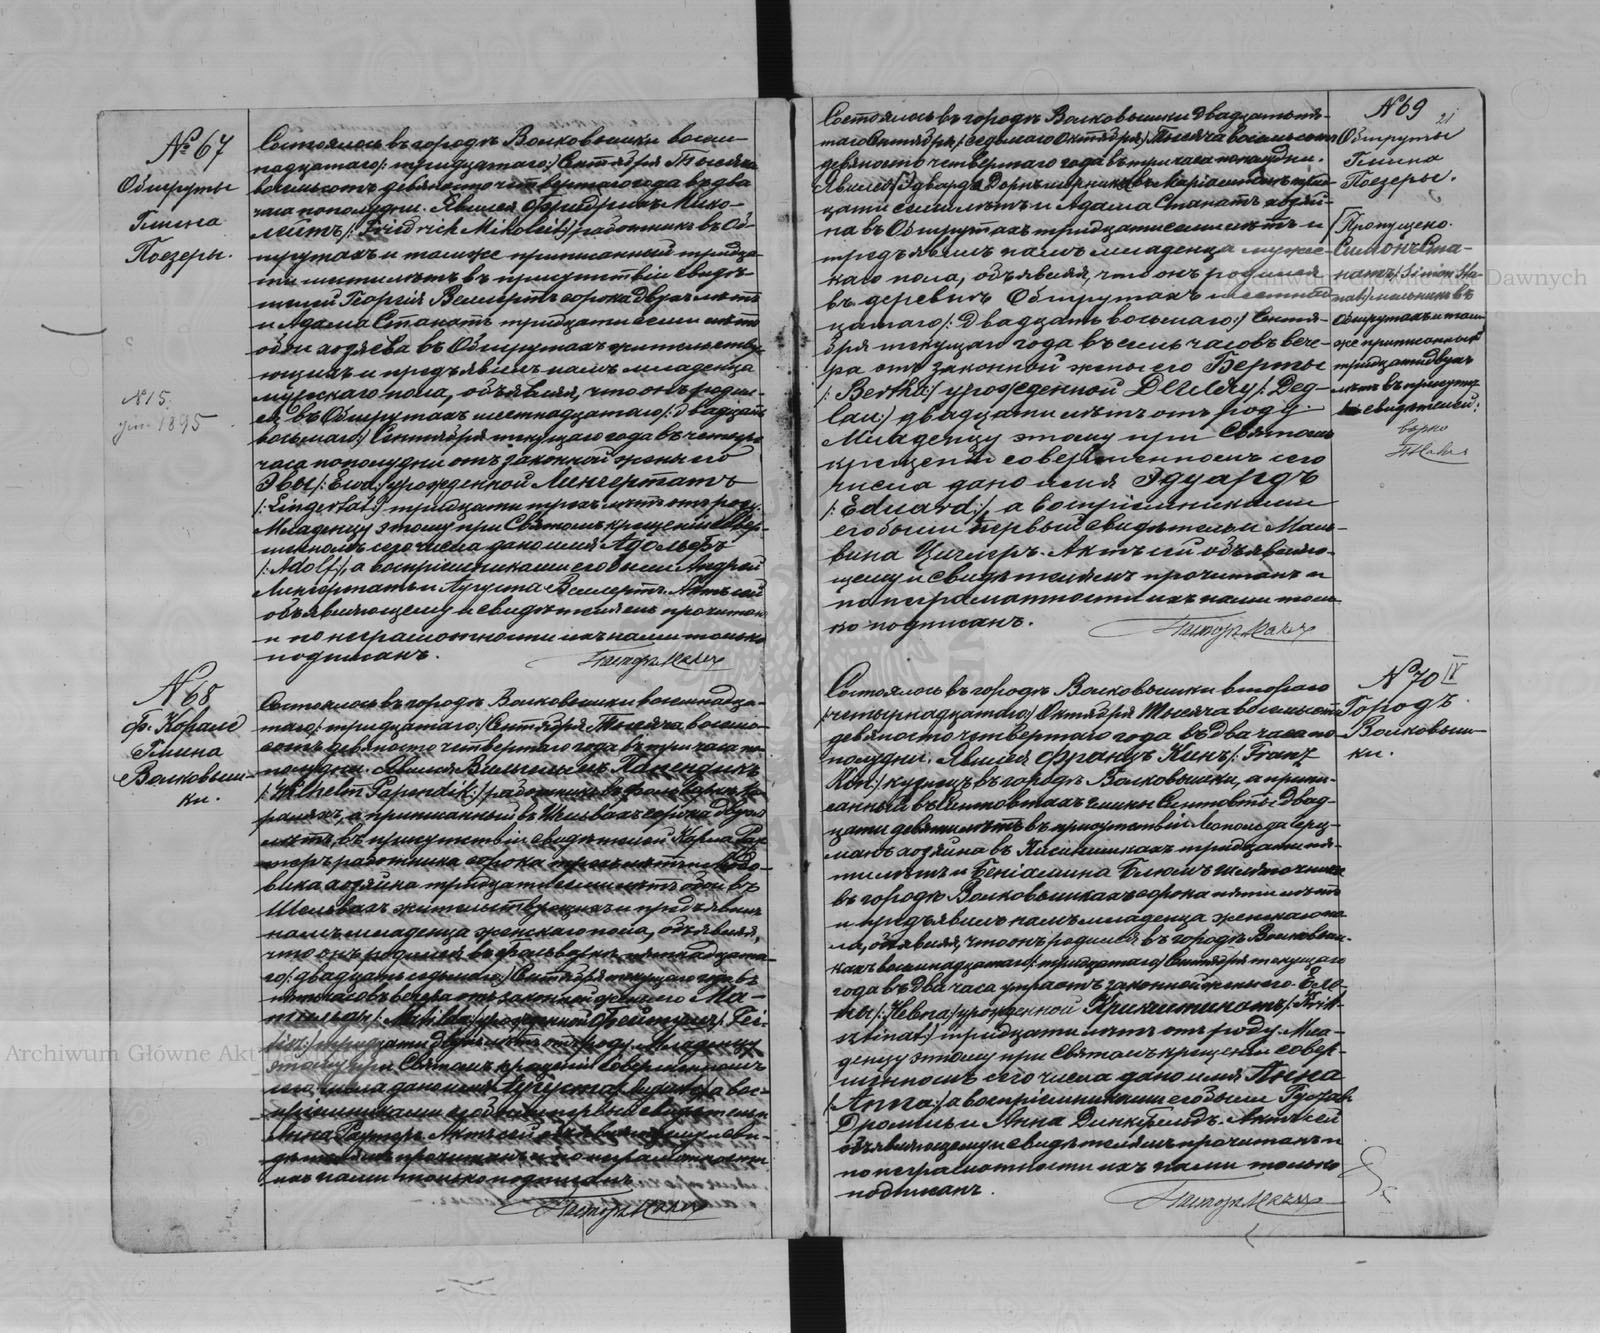 № 67
Обшруты
Гмина
Поезеры.
№ 15.
1895
Состоялось въ городѣ Волковышки восем-
надцатаго /: тридцатаго :/ Сентября Тысяча
восемьсотъ девяносто четвертаго года въ два
часа пополудни. Явился Фридрихъ Мико-
лейтъ /: Friedrich Mikoleit :/ работникъ въ Об-
шрутахъ и тамже приписанный тридца-
ти шести лѣтъ въ присутствіи свидѣ-
телей Георгія Вейерта сорока двухъ лѣтъ
и Адама Станатъ тридцати семи лѣтъ
обои хозяева въ Обшрутахъ жительству-
ющихъ и предъявилъ намъ младенца
мужскаго пола, объявляя, что онъ родил-
ся въ Обшрутахъ шестнадцатаго /: двадцать
восьмаго :/ Сентября текущаго года въ четыре
часа пополудни отъ законной жены его
Эвы /: Ewa :/ урожденной Лингертатъ
/: Lingertat :/ тридцати трехъ лѣтъ отъ роду.
Младенцу этому при Святомъ крещеніи совер-
шенномъ сего числа дано имя Адольфъ
/: Adolf :/, а воспріемниками его были Андрей
Лингертатъ и Августа Вейертъ. Актъ сей
объявляющему и свидѣтелямъ прочитанъ
и по неграмотности ихъ нами только
подписанъ.
Пасторъ
№ 68
ф. Корале
Гмина
Волковыш-
ки.
Состоялось въ городѣ Волковышки восемнадца-
таго /: тридцатаго :/ Сентября Тысяча восемь-
сотъ девяносто четвертаго года въ три часа по-
полудни. Явился Вильгельмъ Папендикъ
/: Wilhelm Papendik :/ работникъ въ фольваркѣ Ко-
ралахъ, а приписанный въ Шельвахъ сорока двухъ
лѣтъ, въ присутствіи свидѣтелей Карла
работника сорока трехъ лѣтъ и Людо-
вика хозяина тридцати семи лѣтъ обои въ
Шельвахъ жительствующихъ и предъявилъ
намъ младенца женскаго пола, объявляя,
что онъ родился въ фольваркѣ пятнадцата-
го /: двадцать седьмаго :/ Сентября текущаго года въ
пять часовъ вечера отъ законной жены его Ма-
тильды /: Matilda :/ урожденной
тридцати двухъ лѣтъ отъ роду. Младенцу
этому при Святомъ крещеніи совершенномъ
сего числа дано имя Августа /: Augusta :/ а вос-
пріемниками его были первый свидѣтель и
Анна Актъ сей объявляющему и сви-
дѣтелямъ прочитанъ и по неграмотности
ихъ нами только подписанъ.
Пасторъ
Состоялось въ городѣ Волковышки двадцать пя-
таго Сентября /: седьмаго Октября :/ Тысяча восемьсотъ
девяносто четвертаго года въ три часа пополудни.
Явился Эдварда въ Маріамполѣ трид-
цати семи лѣтъ и Адама Станатъ хозяи-
на въ Обшрутахъ тридцати семи лѣтъ и
предъявилъ намъ младенца мужес-
каго пола, объявляя, что онъ родился
въ деревнѣ Обшрутахъ шестнад-
цатаго /: Двадцать восьмаго :/ Сентя-
бря текущаго года въ семь часовъ вече-
ра отъ законной жены его Берты
/: Bertha :/ урожденной Деглау /: Deg-
lau :/ двадцати лѣтъ отъ роду.
Младенцу этому при Святомъ
крещеніи совершенномъ сего
числа дано имя Эдуардъ
/: Eduard :/, а воспріемниками
его были первый свидѣтель и Маль-
вина Циглеръ. Актъ сей объявляю-
щему и свидѣтелямъ прочитанъ и
по неграмотности ихъ нами толь-
ко подписанъ.
Пасторъ
№ 69
21
Обшруты
Гмина
Поезеры.
Пропущено.
Симонъ Ста-
натъ /: Simon Sta-
nat :/ мельникъ въ
Обшрутахъ и там-
же приписанный
тридцати двухъ
лѣтъ въ присутст-
свидѣтелей:
вѣрно
№ 70 IV
Городъ
Волковыш-
ки.
Состоялось въ городѣ Волковышки втораго
/: четырнадцатаго :/ Октября Тысяча восемьсотъ
девяносто четвертаго года въ два часа по
полудни. Явился Францъ Кинъ /: Franz
Kin :/ кузнецъ въ городѣ Волковышки, а припи-
санный въ гмины Двад-
цати девяти лѣтъ въ присутствіи Леопольда Герц-
манъ хозяина въ тридцати пя-
ти лѣтъ и Беніамина Блюмъ
въ городѣ Волковышкахъ сорока пяти лѣтъ
и предъявилъ намъ младенца женскаго по-
ла, объявляя, что онъ родился въ городѣ Волковыш-
кахъ восемнадцатаго /: тридцатаго :/ Сентября текущаго
года въ два часа утра отъ законной жены его
урожденной Крикштинатъ /: Krik-
sztinat :/ тридцати лѣтъ отъ роду. Мла-
денцу этому при Святомъ крещеніи совер-
шенномъ сего числа дано имя Анна
/: Anna :/ а воспріемниками его были Густавъ
и Анна Актъ сей
объявляющему и свидѣтелямъ прочитанъ и
по неграмотности ихъ нами только
подписанъ.
Пасторъ
Archiwum Główne Akt Dawnych
Archiwum Główne Akt Dawnych